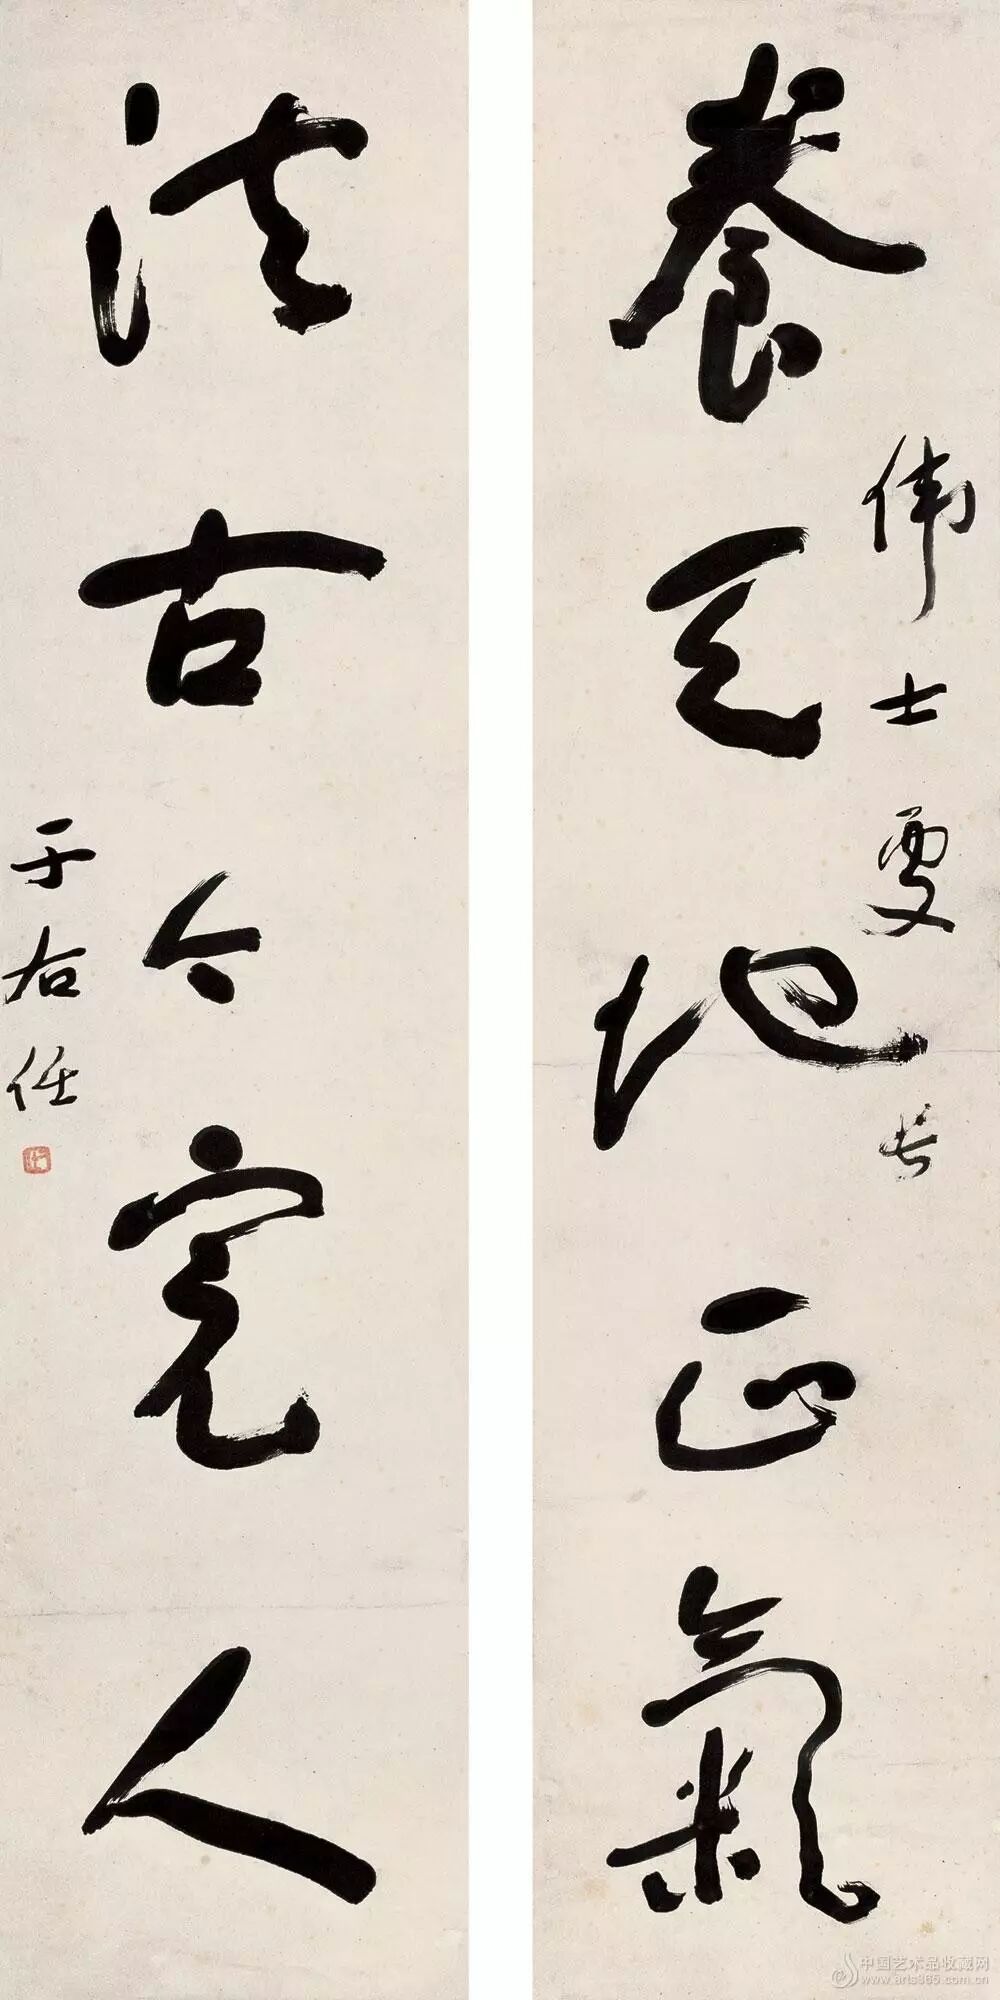 養天地正氣
伟士处长
法古今完人
于右任
中国艺术品收藏网
www.arts365.com.cn